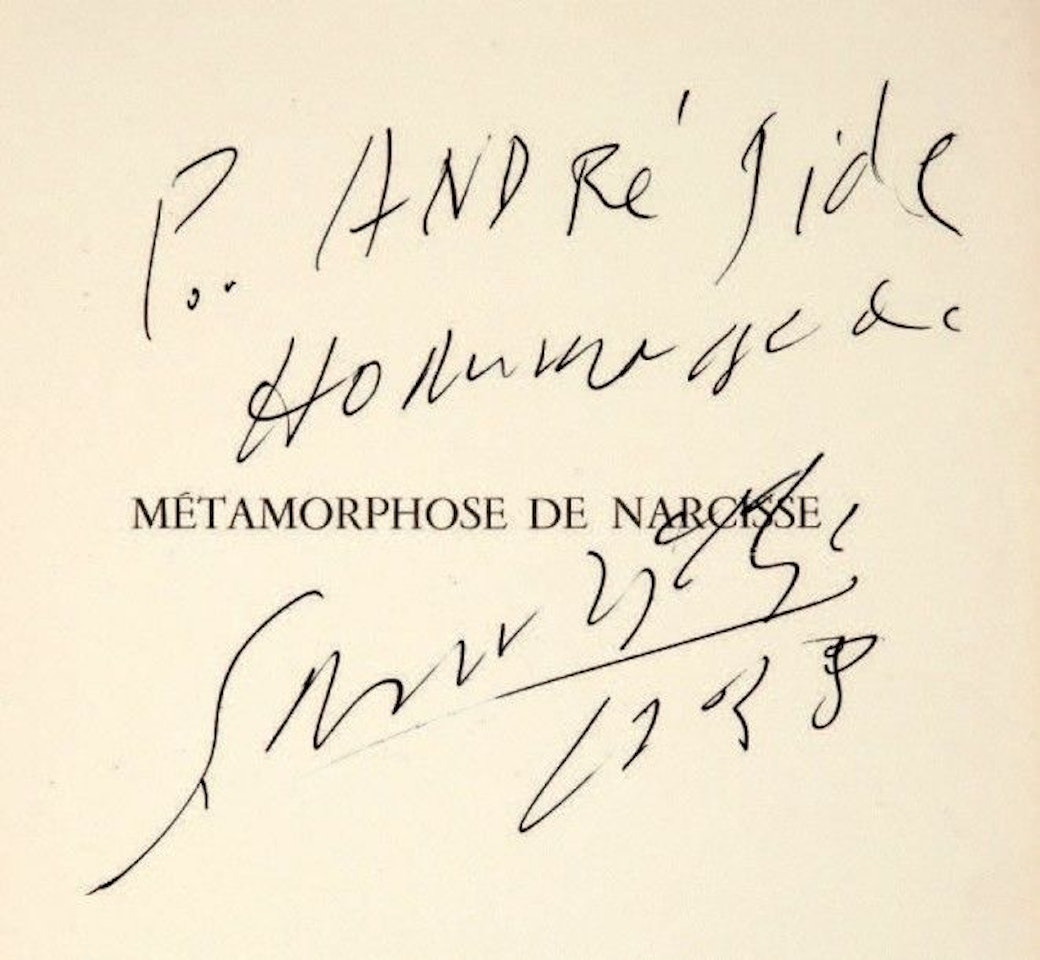 P. ANDRé Gide
Hommage de
MÉTAMORPHOSE DE NARCISSE
1938